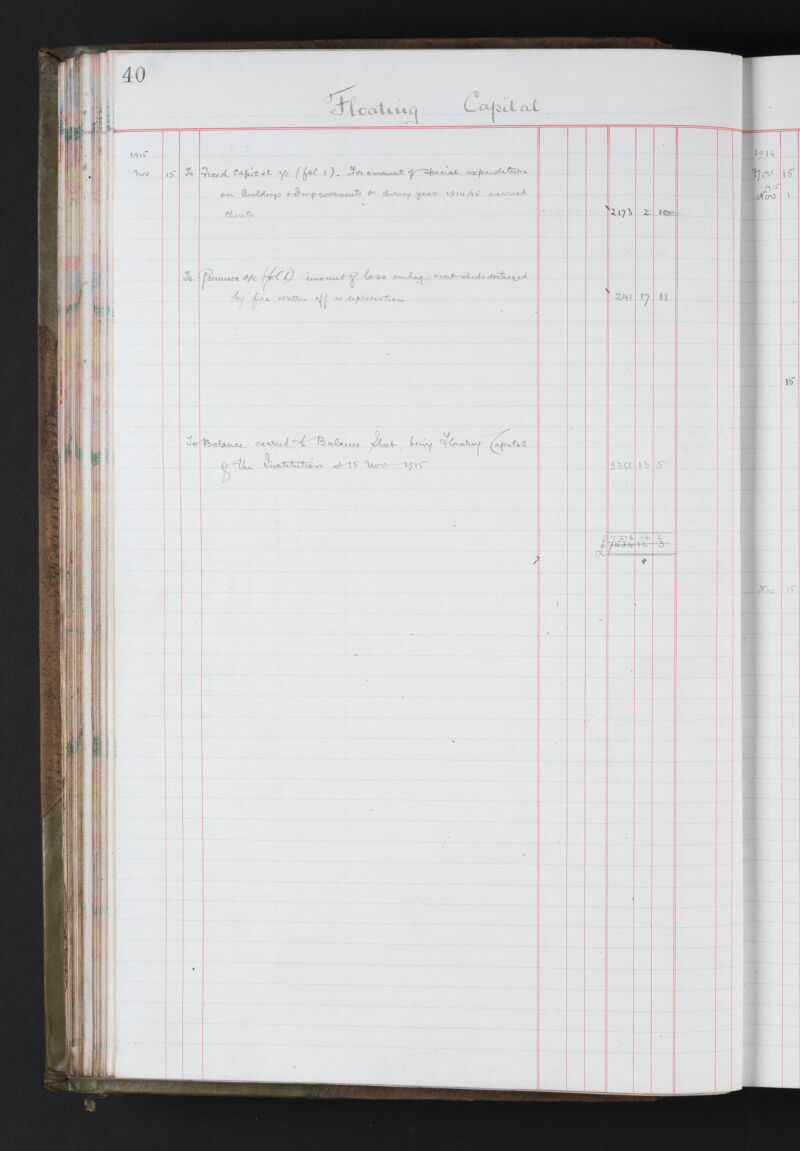 40
Floating Capital
1915
Nov 15 To Fixed Capital a/c (fol 1). For amount of special expenditure
on Buildings & Improvements &c during year 1914/15 carried
thereto 2173 2 10
To Revenue a/c (fol 6) amount of loss on hay sheds destroyed
by fire written off as depreciation 241 17 11
To Balance carried to Balance Sheet, being Floating Capital
of the Institution at 15 Nov 1915 5361 13 5
£7776 14 2
1914
Nov 15
1915
Nov 1
15
Nov 15